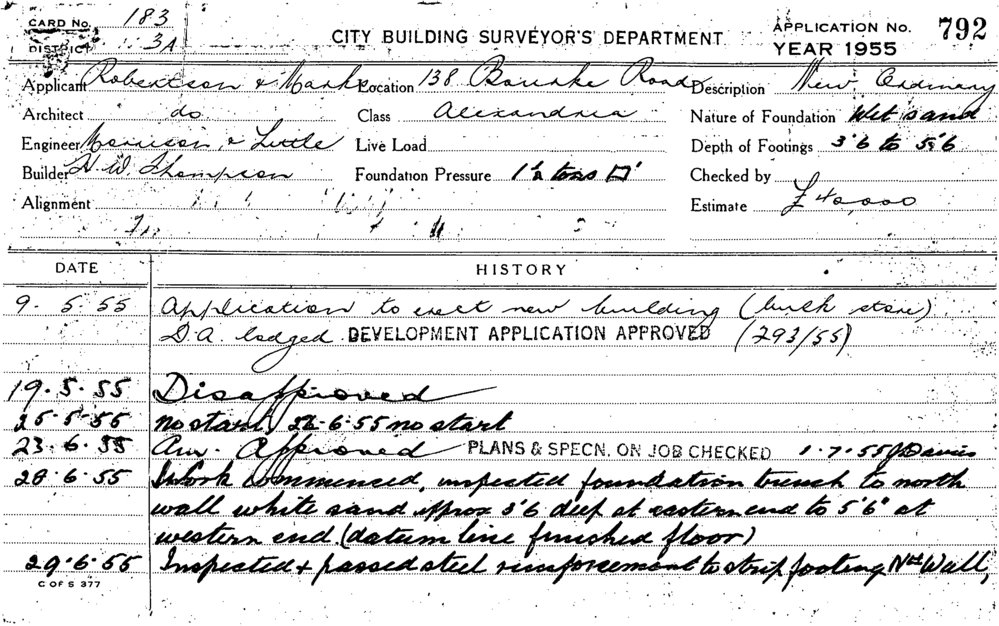 CARD No. 183
DISTRICT 3A
CITY BUILDING SURVEYOR'S DEPARTMENT
APPLICATION No. 792
YEAR 1955
Applicant Robertson & Marks Location 138 Bourke Road Description New Ordinary
Architect do Class Alexandria Nature of Foundation Wet sand
Engineer Morrison & Little Live Load Depth of Footings 3'6 to 5'6
Builder H. W. Thompson Foundation Pressure 1½ tons □' Checked by
Alignment Estimate £40,000
DATE HISTORY
9. 5. 55 Application to erect new building (bulk store)
D.A. lodged DEVELOPMENT APPLICATION APPROVED (293/55)
19. 5. 55 Disapproved
25-5-55 no start, 22-6-55 no start
23. 6. 55 Am. Approved PLANS & SPECN. ON JOB CHECKED 1.7.55 J Davies
28.6.55 Work Commenced, inspected foundation trench to north
wall white sand approx 3'6 deep at eastern end to 5'6" at
western end. (datum line finished floor)
29.6.55 Inspected & passed steel reinforcement to strip footing Nth Wall,
C OF S 377